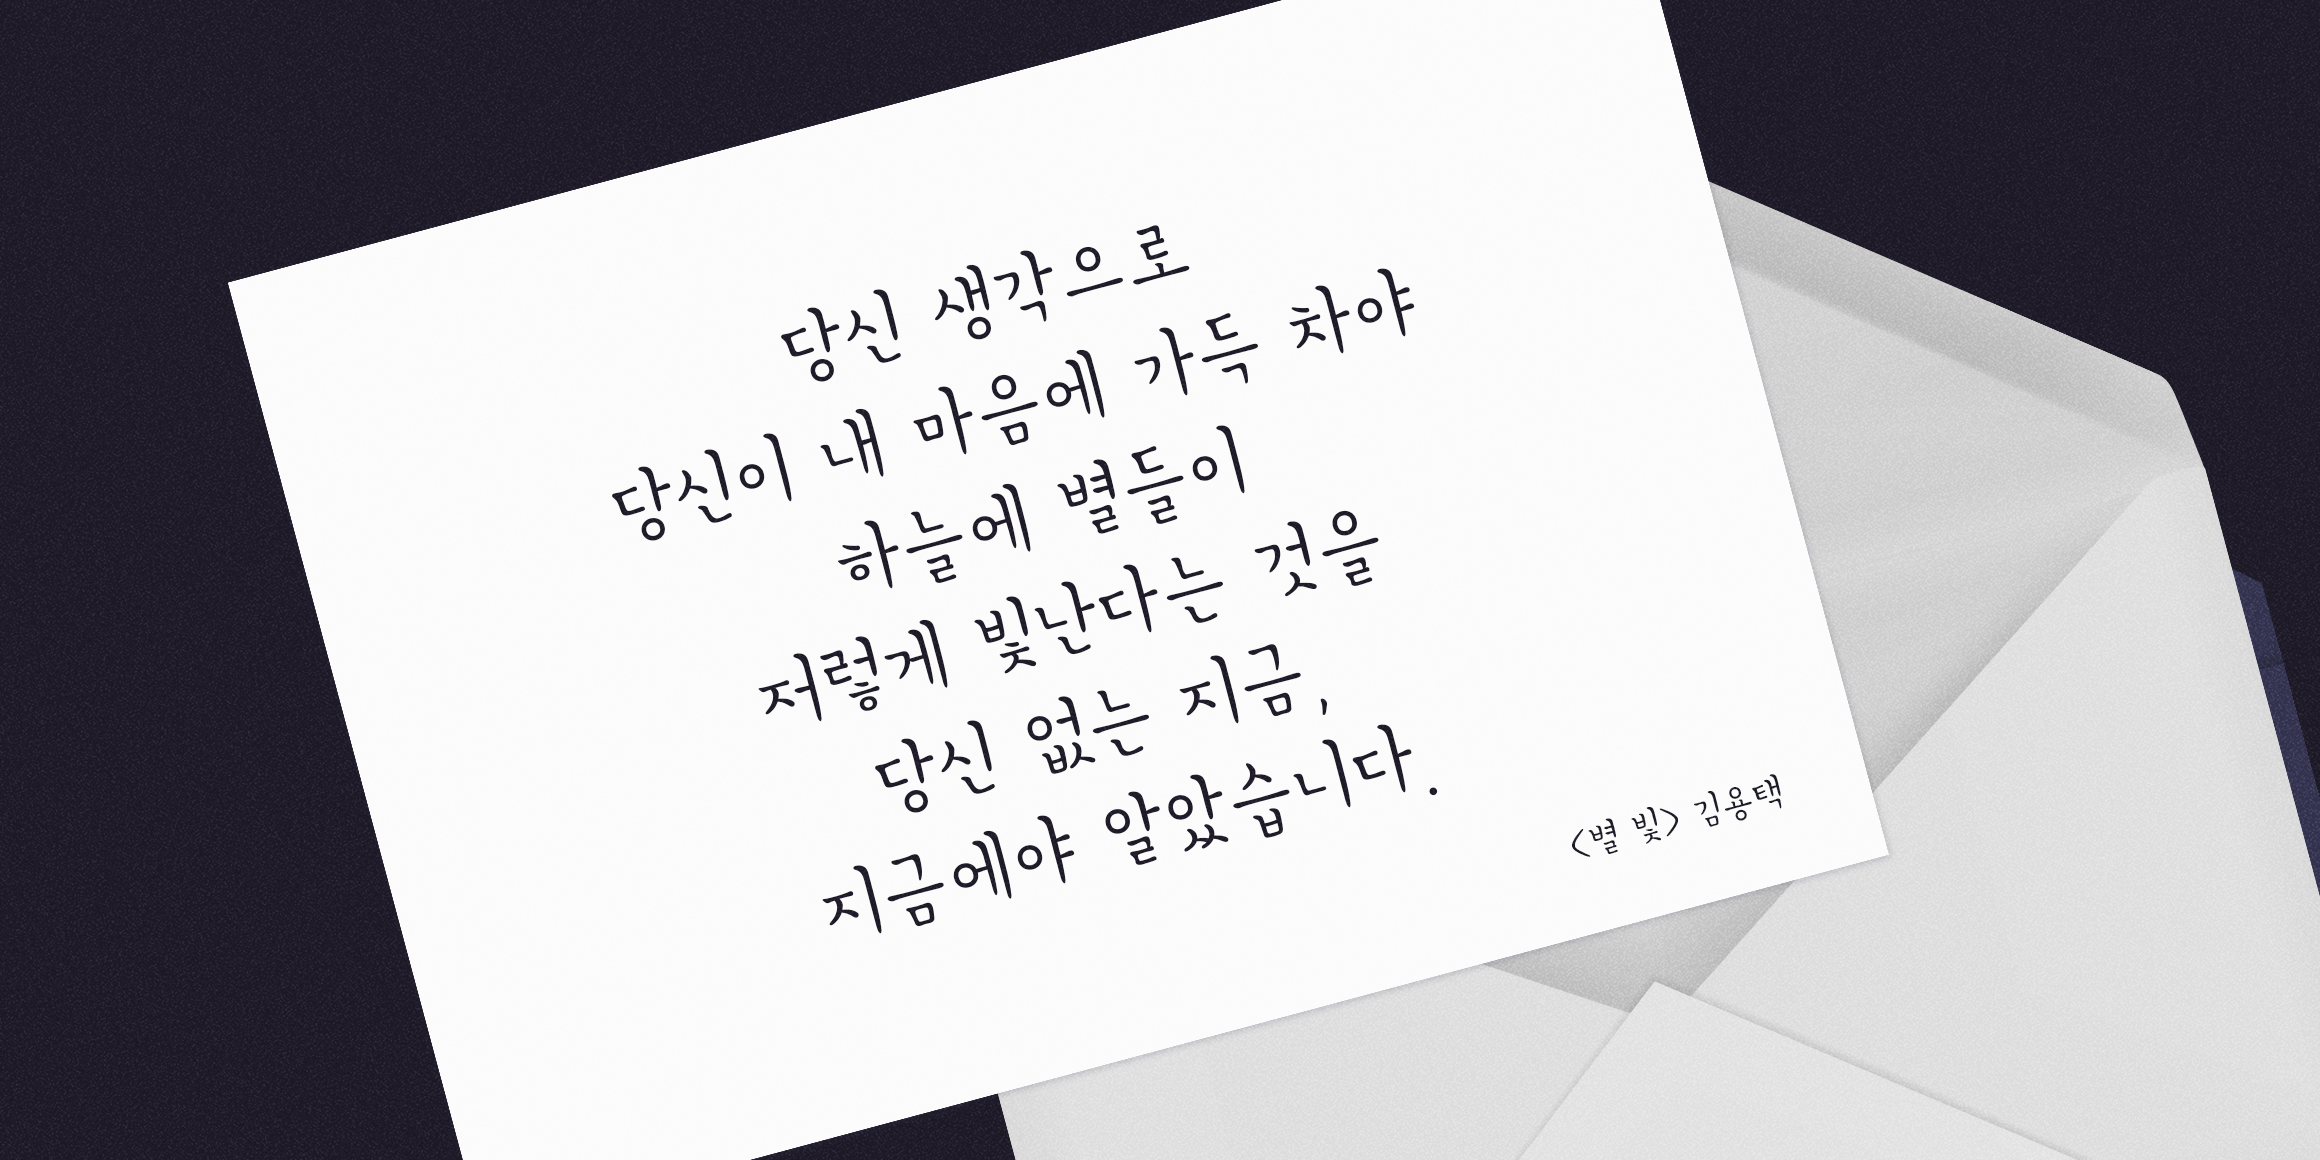 당신 생각으로
당신이 내 마음에 가득 차야
하늘에 별들이
저렇게 빛난다는 것을
당신 없는 지금,
지금에야 알았습니다.
<별 빛> 김용택